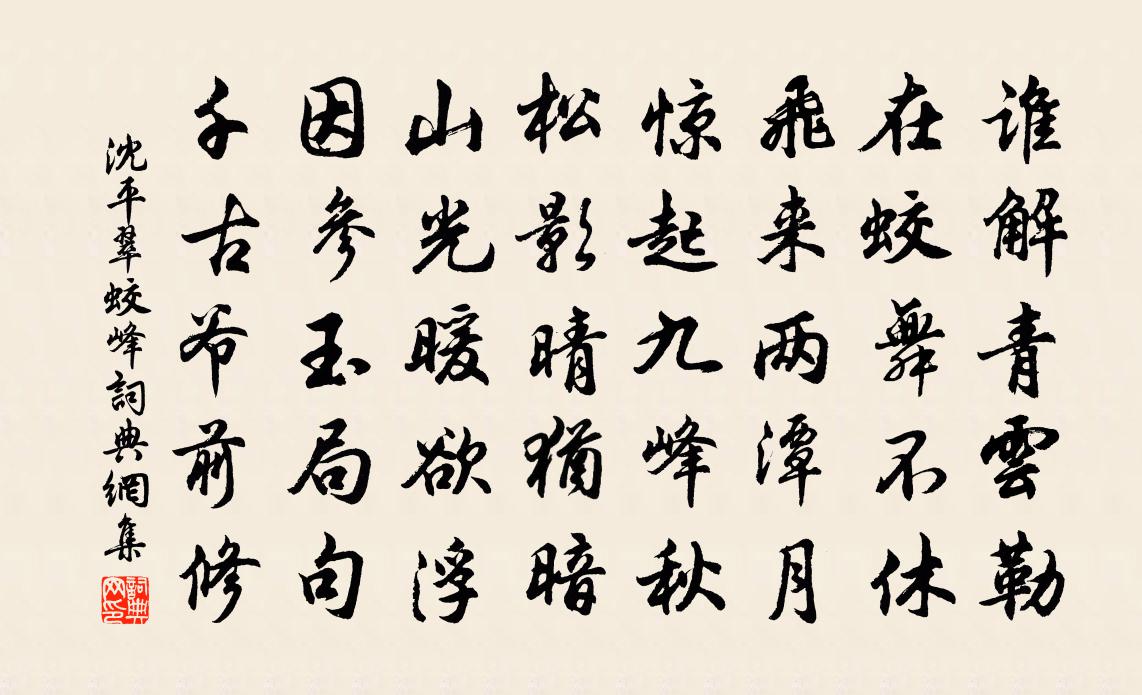 谁解青雲勒
在蛟舞不休
飛来两潭月
惊起九峰秋
松影晴猶暗
山光暖欲浮
因參玉局句
千古希前修
沈平翠蛟峰詞典網集
詞典网印